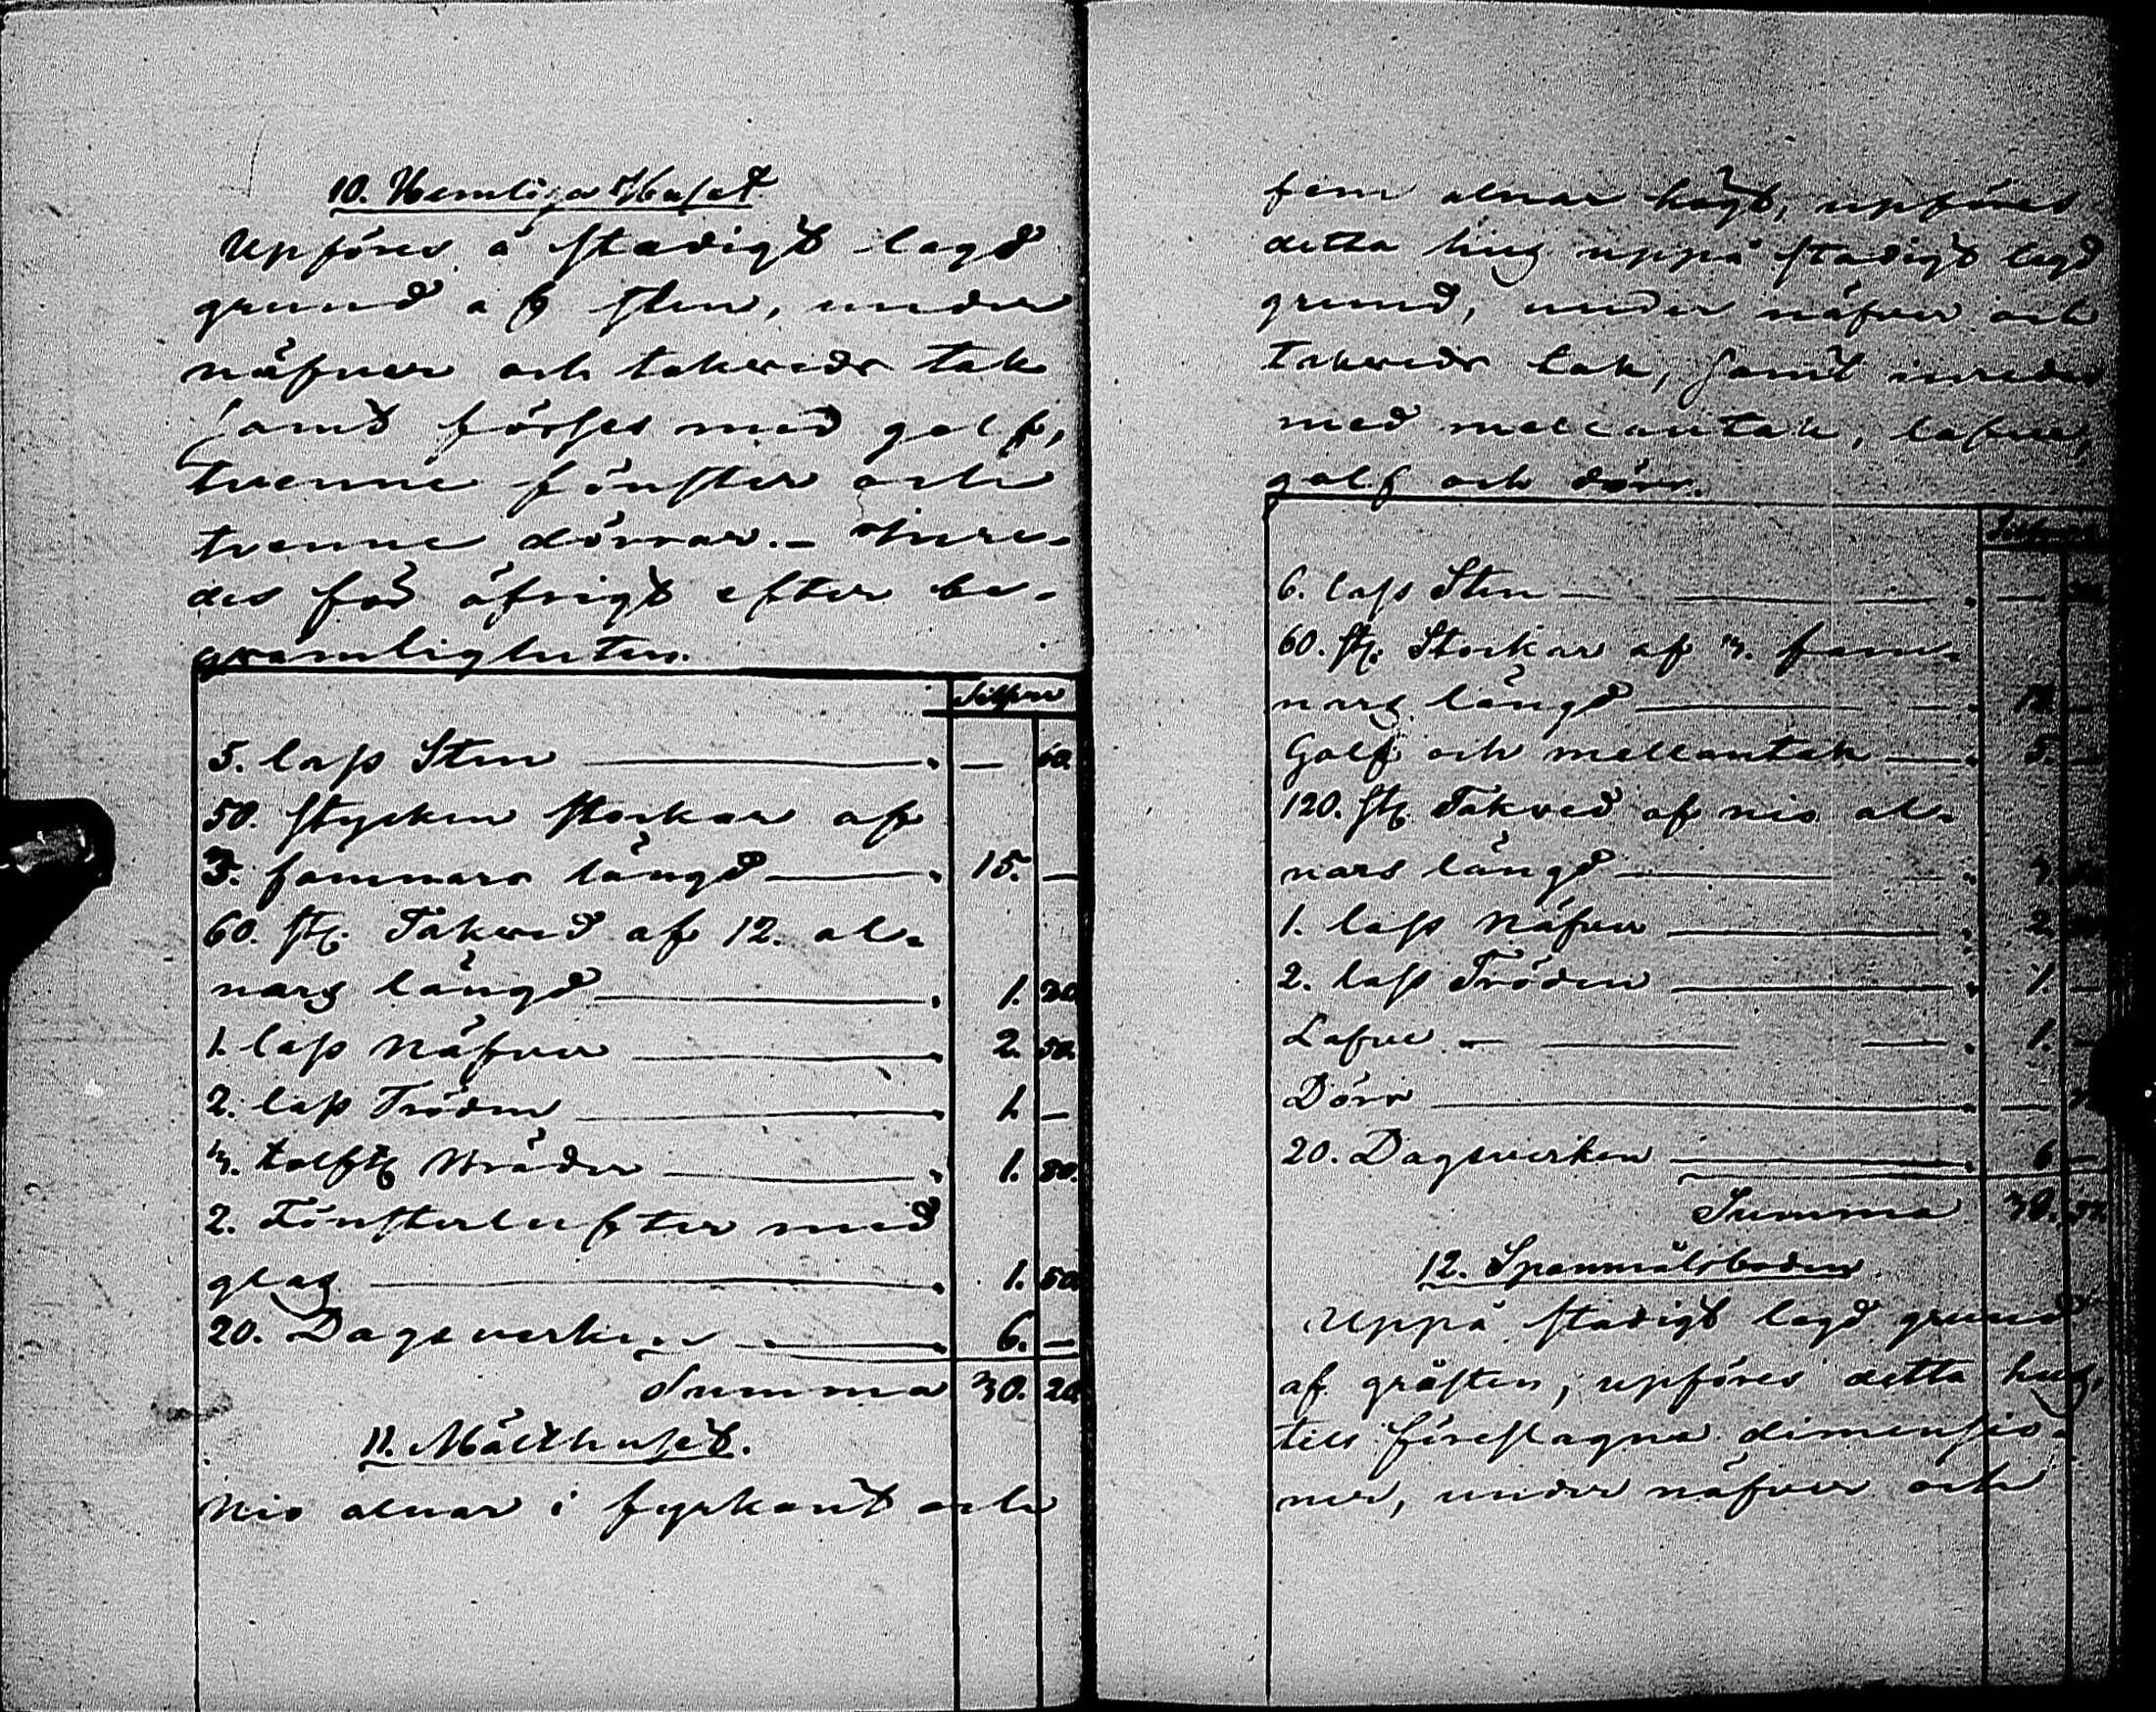 10. Hemliga Huset
Upföres å stadigt lagd
grund af sten, under
näfver och takveds tak
samt förses med golf,
tvenne fönster och
tvenne dörrar. - Inre-
des för öfrigt efter be-
qvämligheten.
Silfver
5. lass Sten — 60.
50. stycken stockar af
3. famnars längd 15. —
60. st. Takved af 12. al-
nars längd 1. 80
1. lass Näfver 2. 50.
2. lass Tröden 1. —
3. tolfter Bräder 1. 80.
2. Fönsterlufter med
glas 1. 50
20. Dagsverken 6. —
Summa 30. 20
11. Mälthuset.
Nio alnar i fyrkant och
fem alnar högt, upföres
detta hus uppå stadigt lagd
grund, under näfver och
takveds tak, samt inredes
med mellantak, lafve,
golf och dörr.
6. lass Sten —
60. st. Stockar af 3. fam-
nars längd —
Golf och mellantak 5. —
120. st. Takved af nio al-
nars längd
1. lass Näfver 2.
2. lass Tröden 1. —
Lafve 1. —
Dörr —
20. Dagsverken 6 —
Summa
12. Spannmålsboden
Uppå stadigt lagd grund
af gråsten, upföres detta hus,
till föreslagna dimensio-
ner, under näfver och